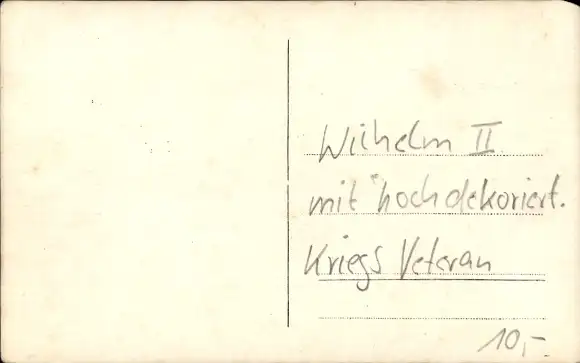 Wilhelm II
mit hochdekoriert.
Kriegs Veteran
10,-